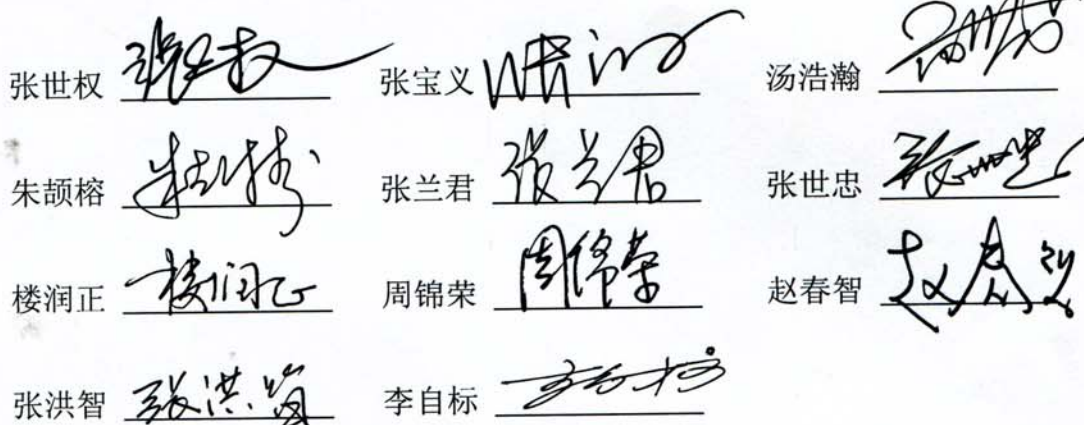 张世权 张世权 张宝义 张宝义 汤浩瀚
朱颉榕 朱颉榕 张兰君 张兰君 张世忠 张世忠
楼润正 楼润正 周锦荣 周锦荣 赵春智 赵春智
张洪智 张洪智 李自标 李自标